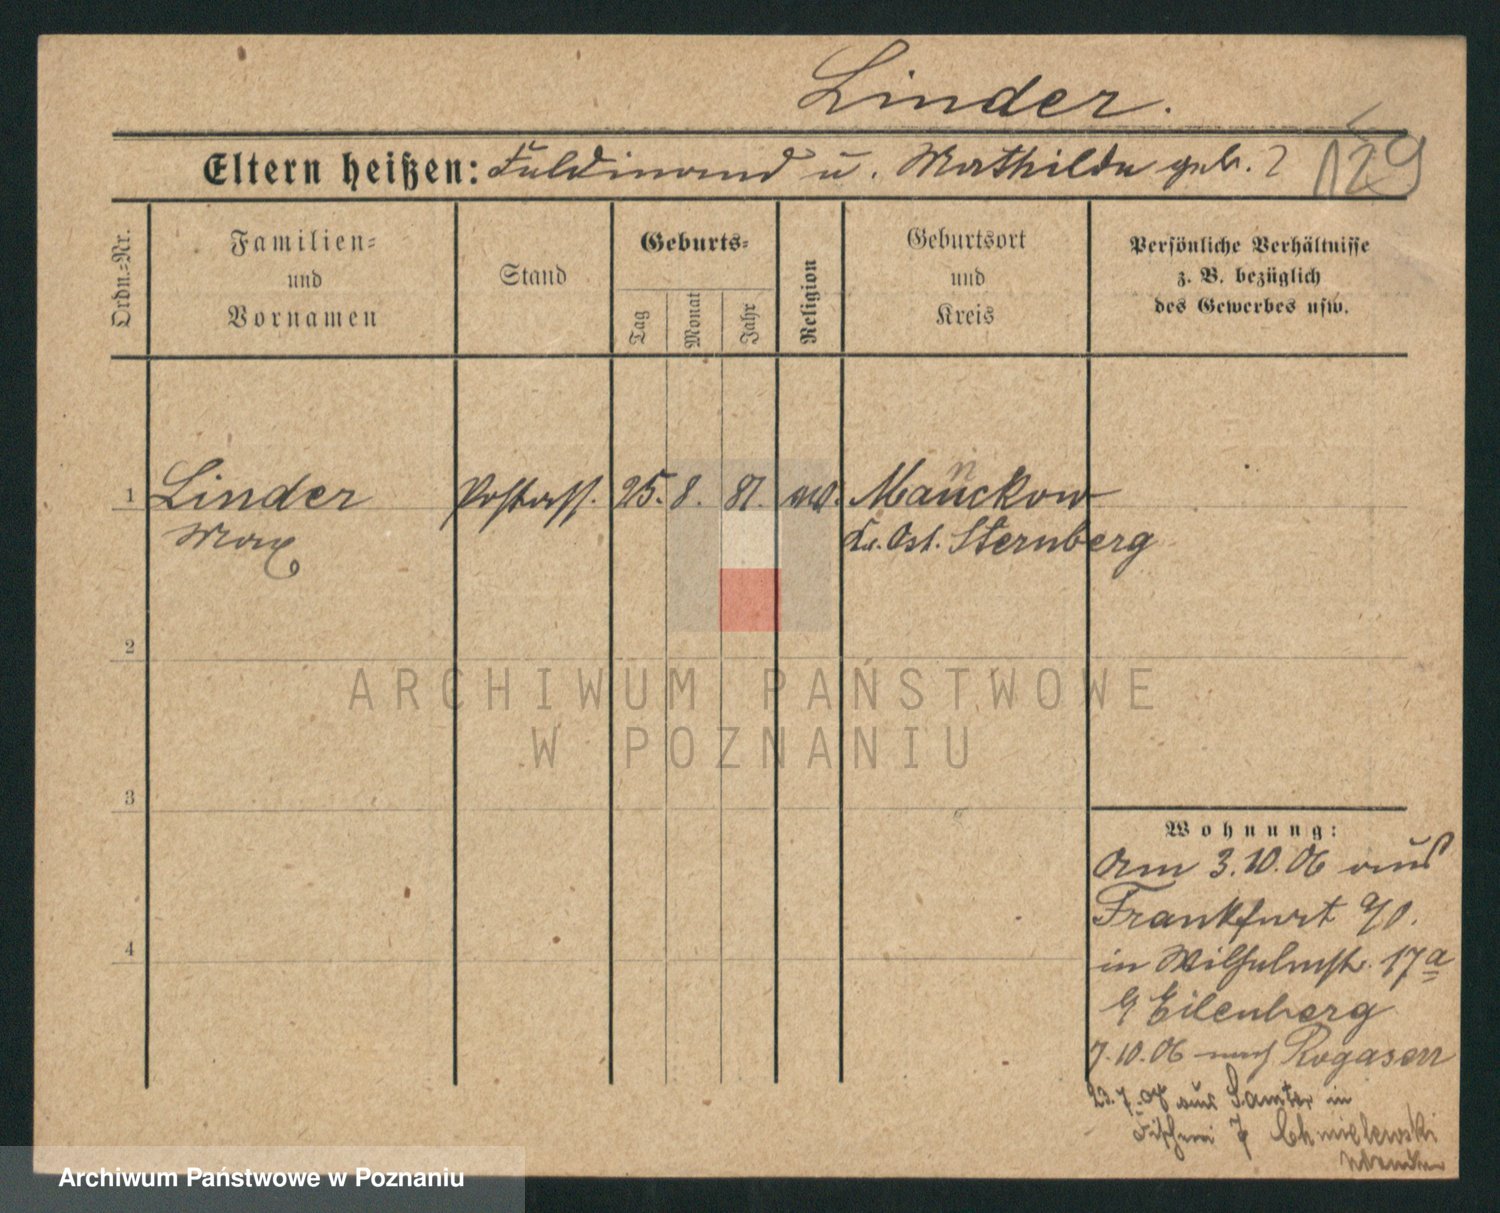 Linder.
Eltern heißen: Ferdinand u. Mathilde geb. ?
129
Ordn.-Nr.
Familien-
und
Vornamen
Stand
Geburts-
Tag
Monat
Jahr
Religion
Geburtsort
und
Kreis
Persönliche Verhältnisse
z. B. bezüglich
des Gewerbes usw.
1 Linder Postass. 25. 8. 81. Manckow
Max Kr. Ost. Sternberg
2
ARCHIWUM PAŃSTWOWE
W POZNANIU
3
Wohnung:
Am 3.10.06 aus
Frankfurt a/O.
in Wilhelmstr. 17a
Eilenberg
4
7.10.06 nach Rogasen
23.7.07 aus Samter in
Fischerei Chmielewski
Archiwum Państwowe w Poznaniu